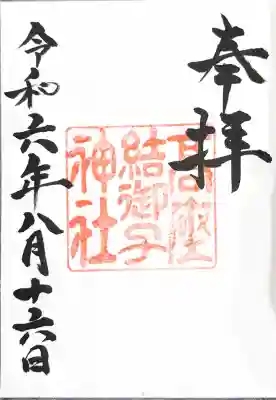 奉拝
高座
結御子
神社
令和六年八月十六日